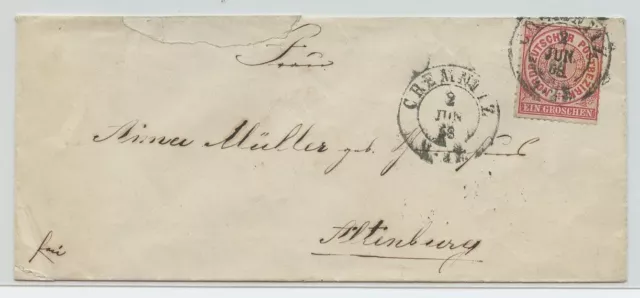 Frau
Anna Müller geb.
Altenburg
frei
CHEMNITZ
2
JUN
68
NORDDEUTSCHER POSTBEZIRK
EIN GROSCHEN
2
JUN
68